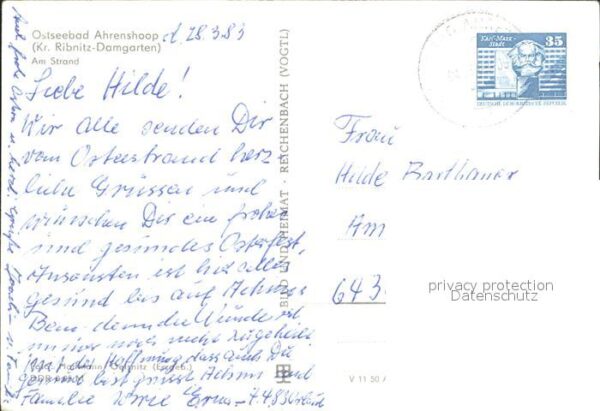 Ostseebad Ahrenshoop
(Kr. Ribnitz-Damgarten)
Am Strand
d. 28.3.83
Liebe Hilde!
Wir alle senden Dir
vom Ostseestrand herz-
liche Grüssen und
wünschen Dir ein frohes
und gesundes Osterfest,
Ansonsten ist hier alles
gesund bis auf
Bein denn die Wunde ist
immer noch nicht zugeheilt
Mit der Hoffnung, dass auch Du
gesund bist grüsst und
Familie
Auch frohe Ostern u. herzl. Grüsse
BILD UND HEIMAT · REICHENBACH (VOGTL)
V 11 50
Karl-Marx-
Stadt
35
DEUTSCHE DEMOKRATISCHE REPUBLIK
Frau
Hilde Barthauer
Am
643
privacy protection
Datenschutz